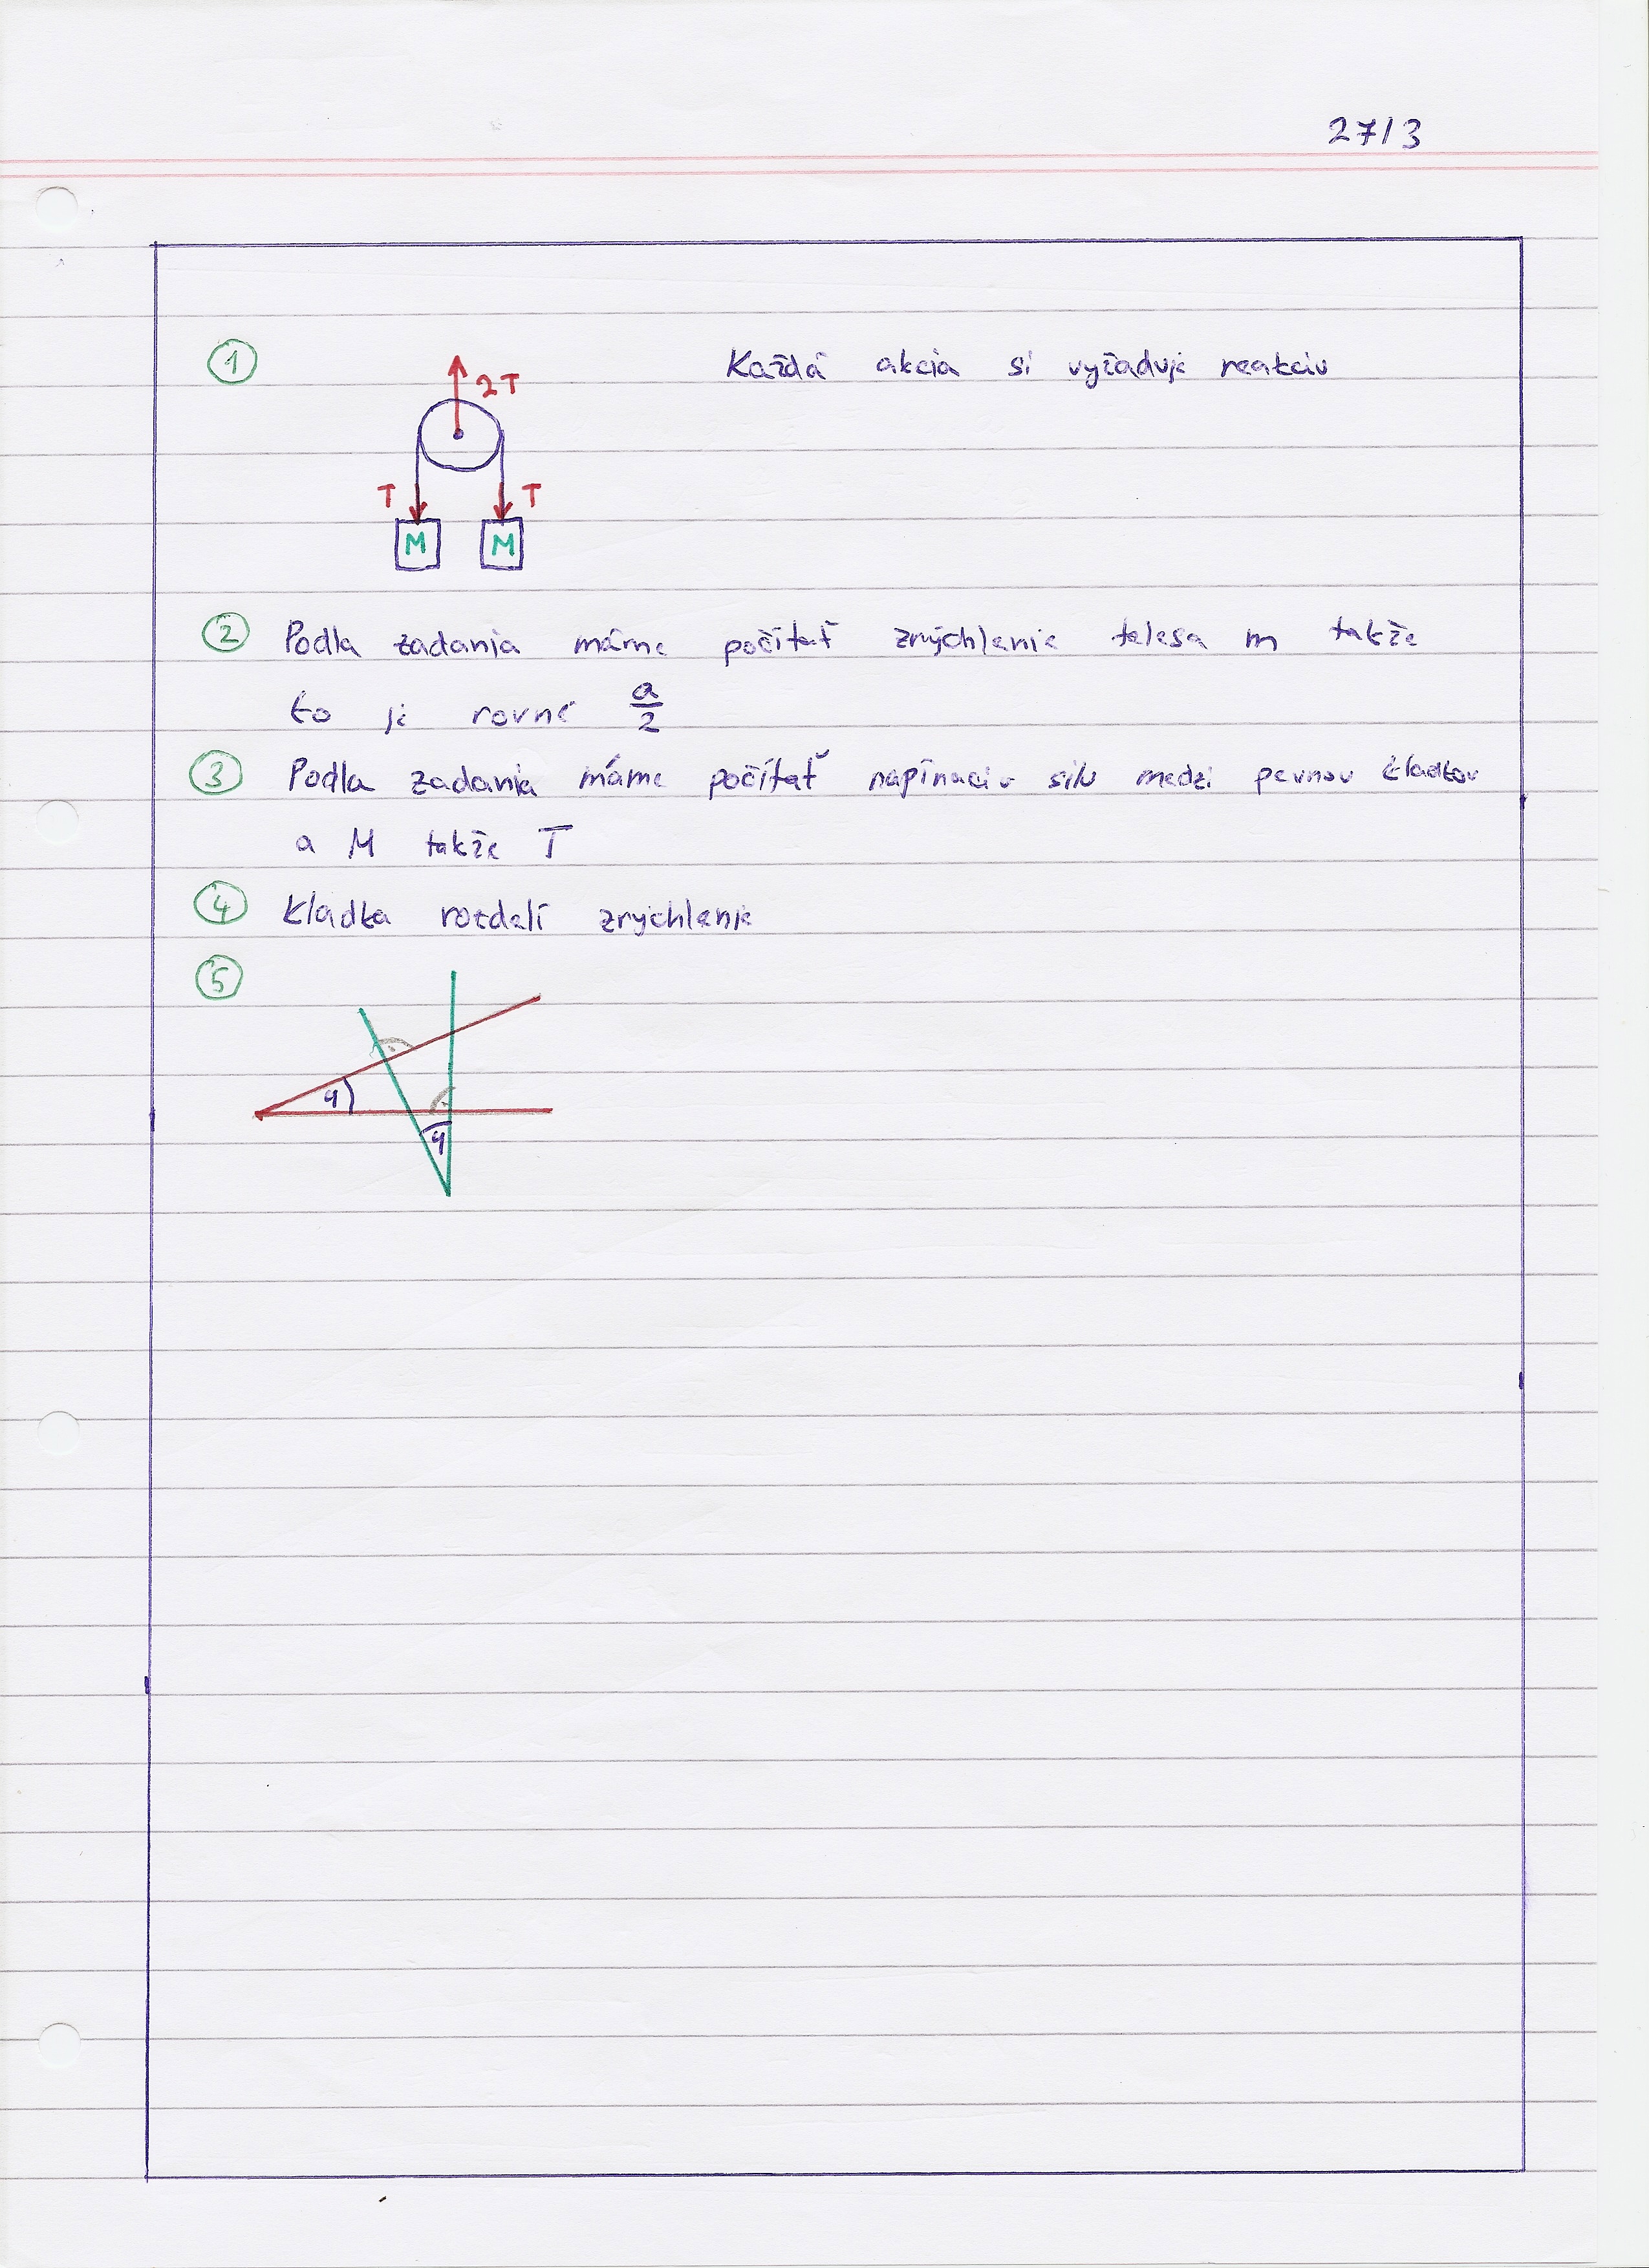 27/3
① Každá akcia si vyžaduje reakciu
2T
T T
M M
② Podla zadania máme počítať zrýchlenie telesa m takže
to je rovné a/2
③ Podla zadania máme počítať napínaciu silu medzi pevnou kladkou
a M takže T
④ kladka rozdelí zrýchlenie
⑤
φ
φ